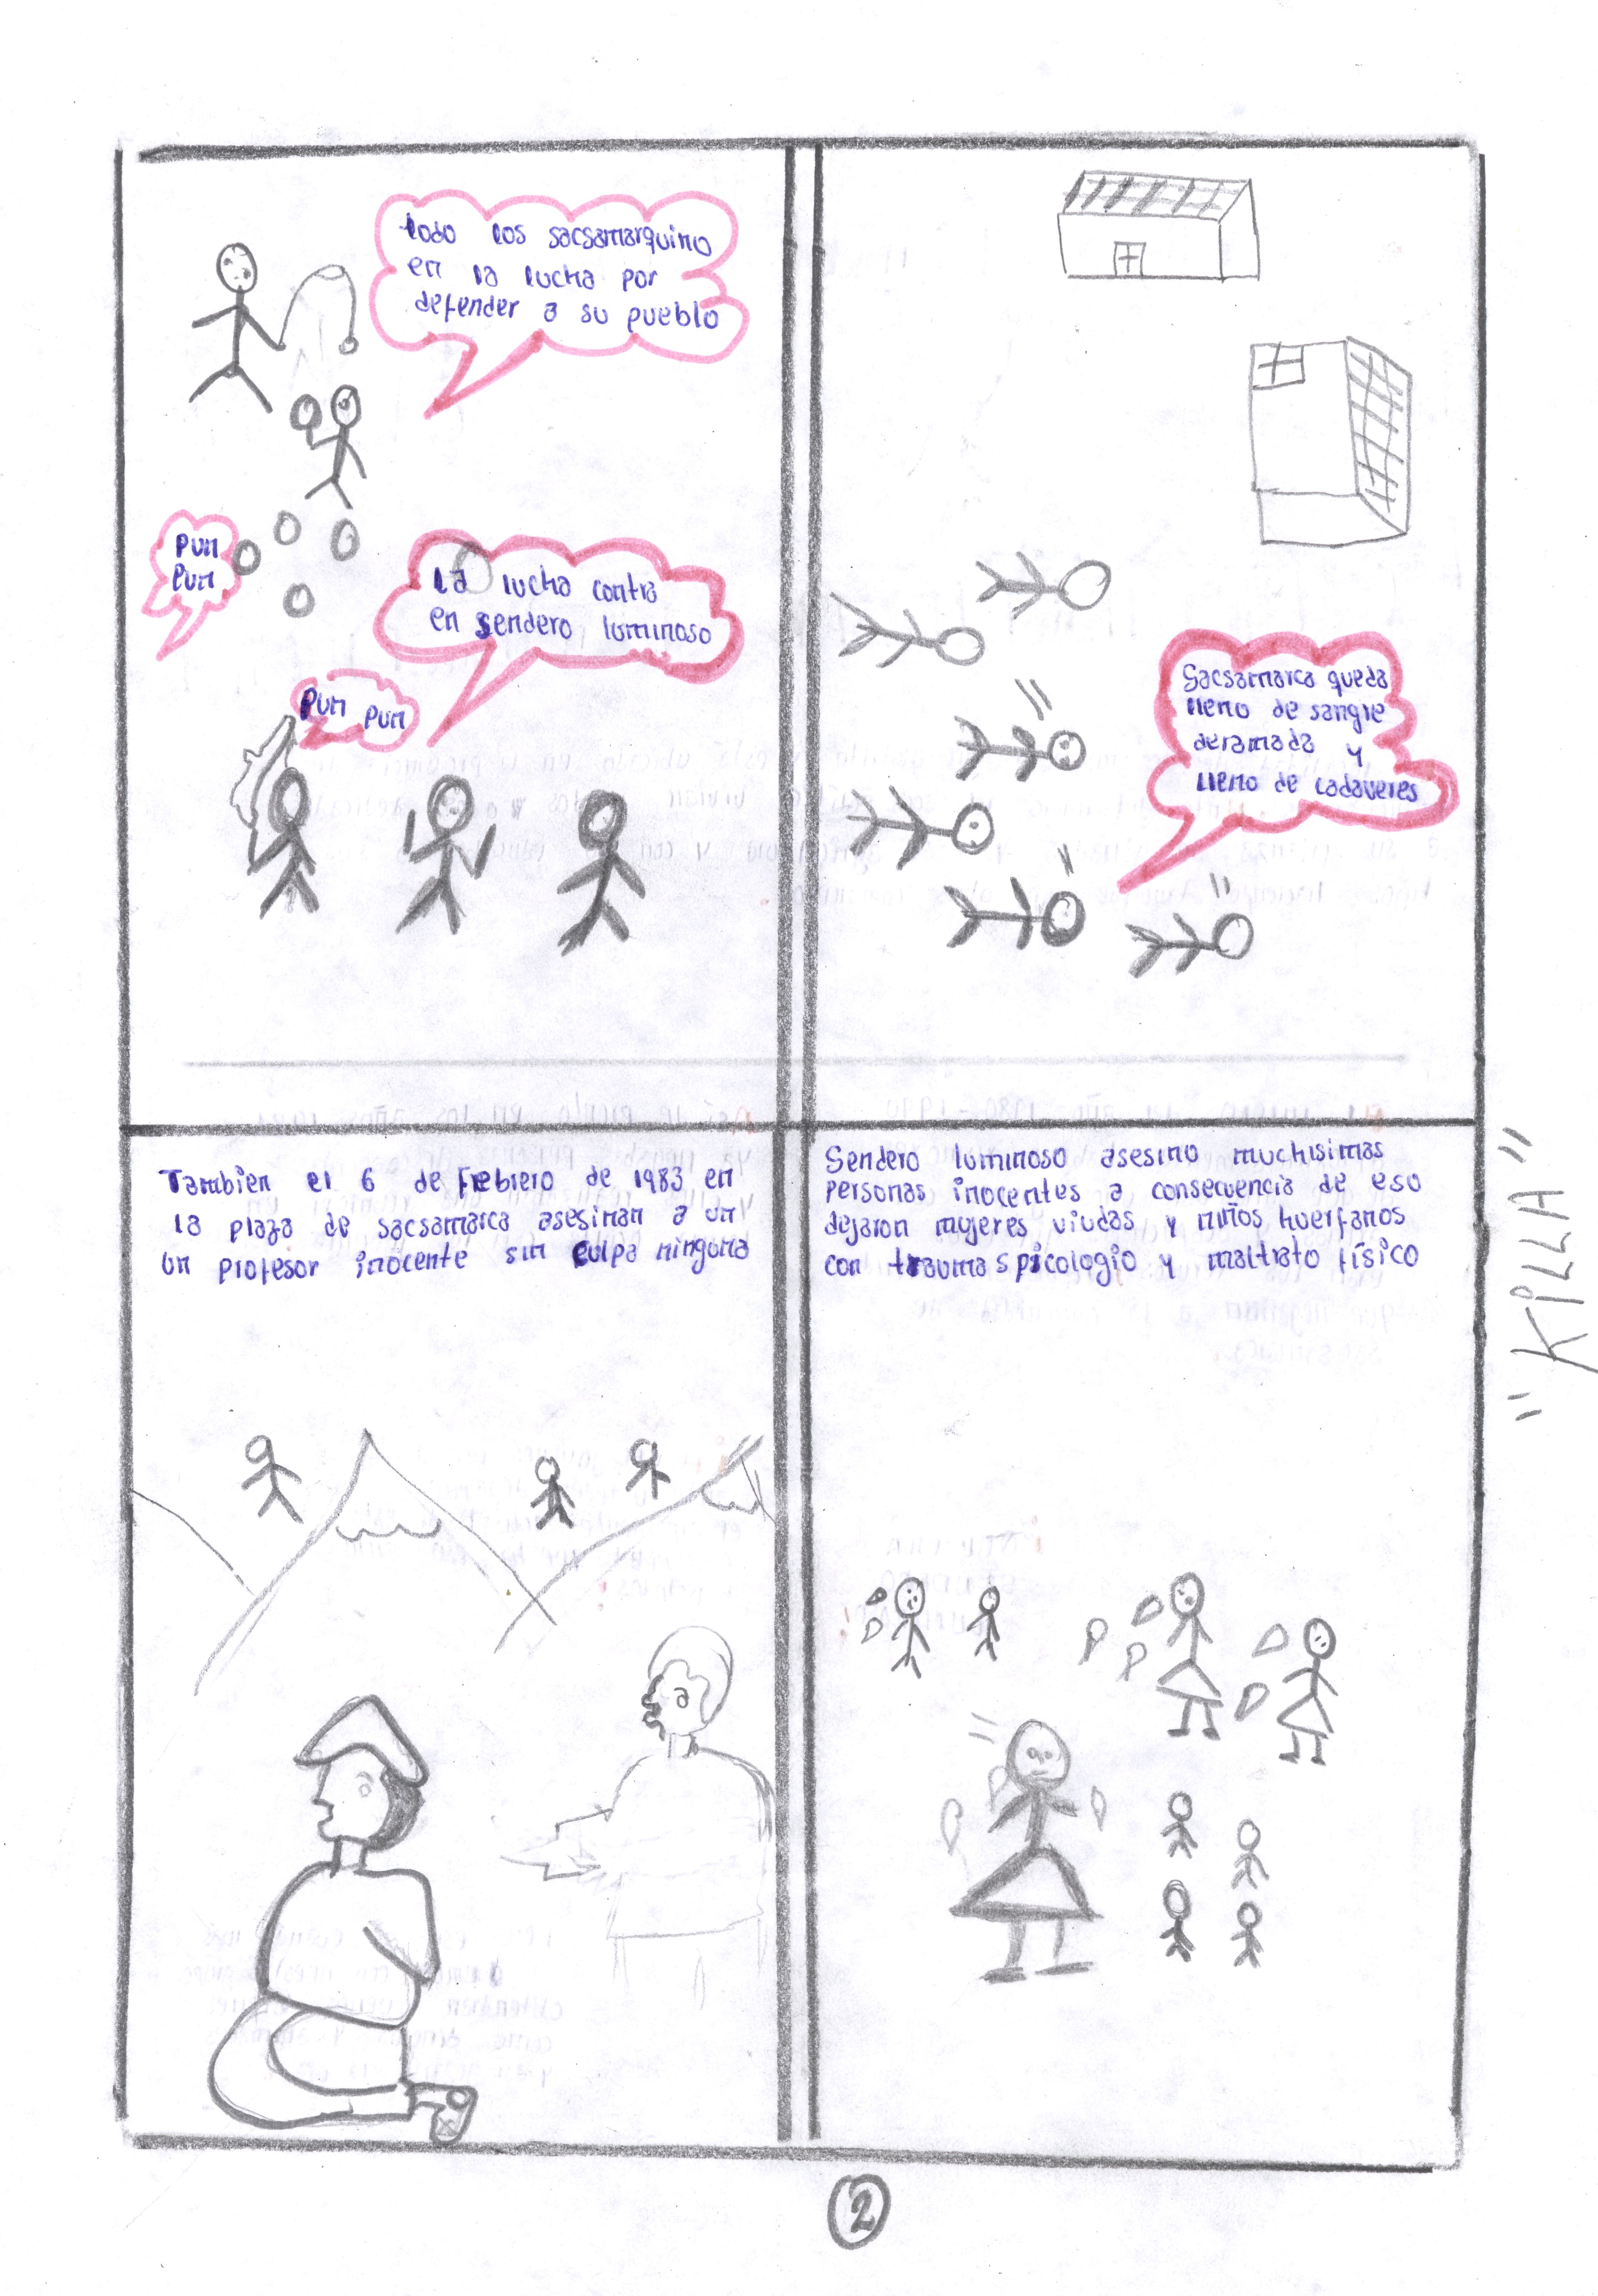 todo los sacsamarquino
en la lucha por
defender a su pueblo
Pum
Pum
La lucha contra
en sendero luminoso
Pum Pum
Sacsamarca queda
lleno de sangre
deramada y
lleno de cadaveres
Tambien el 6 de Febrero de 1983 en
la plaza de sacsamarca asesinan a un
un profesor inocente sin culpa ninguna
Sendero luminoso asesino muchisimas
personas inocentes a consecuencia de eso
dejaron mujeres viudas y niños huerfanos
con traumas picologio y maltrato físico
"KILLA"
2